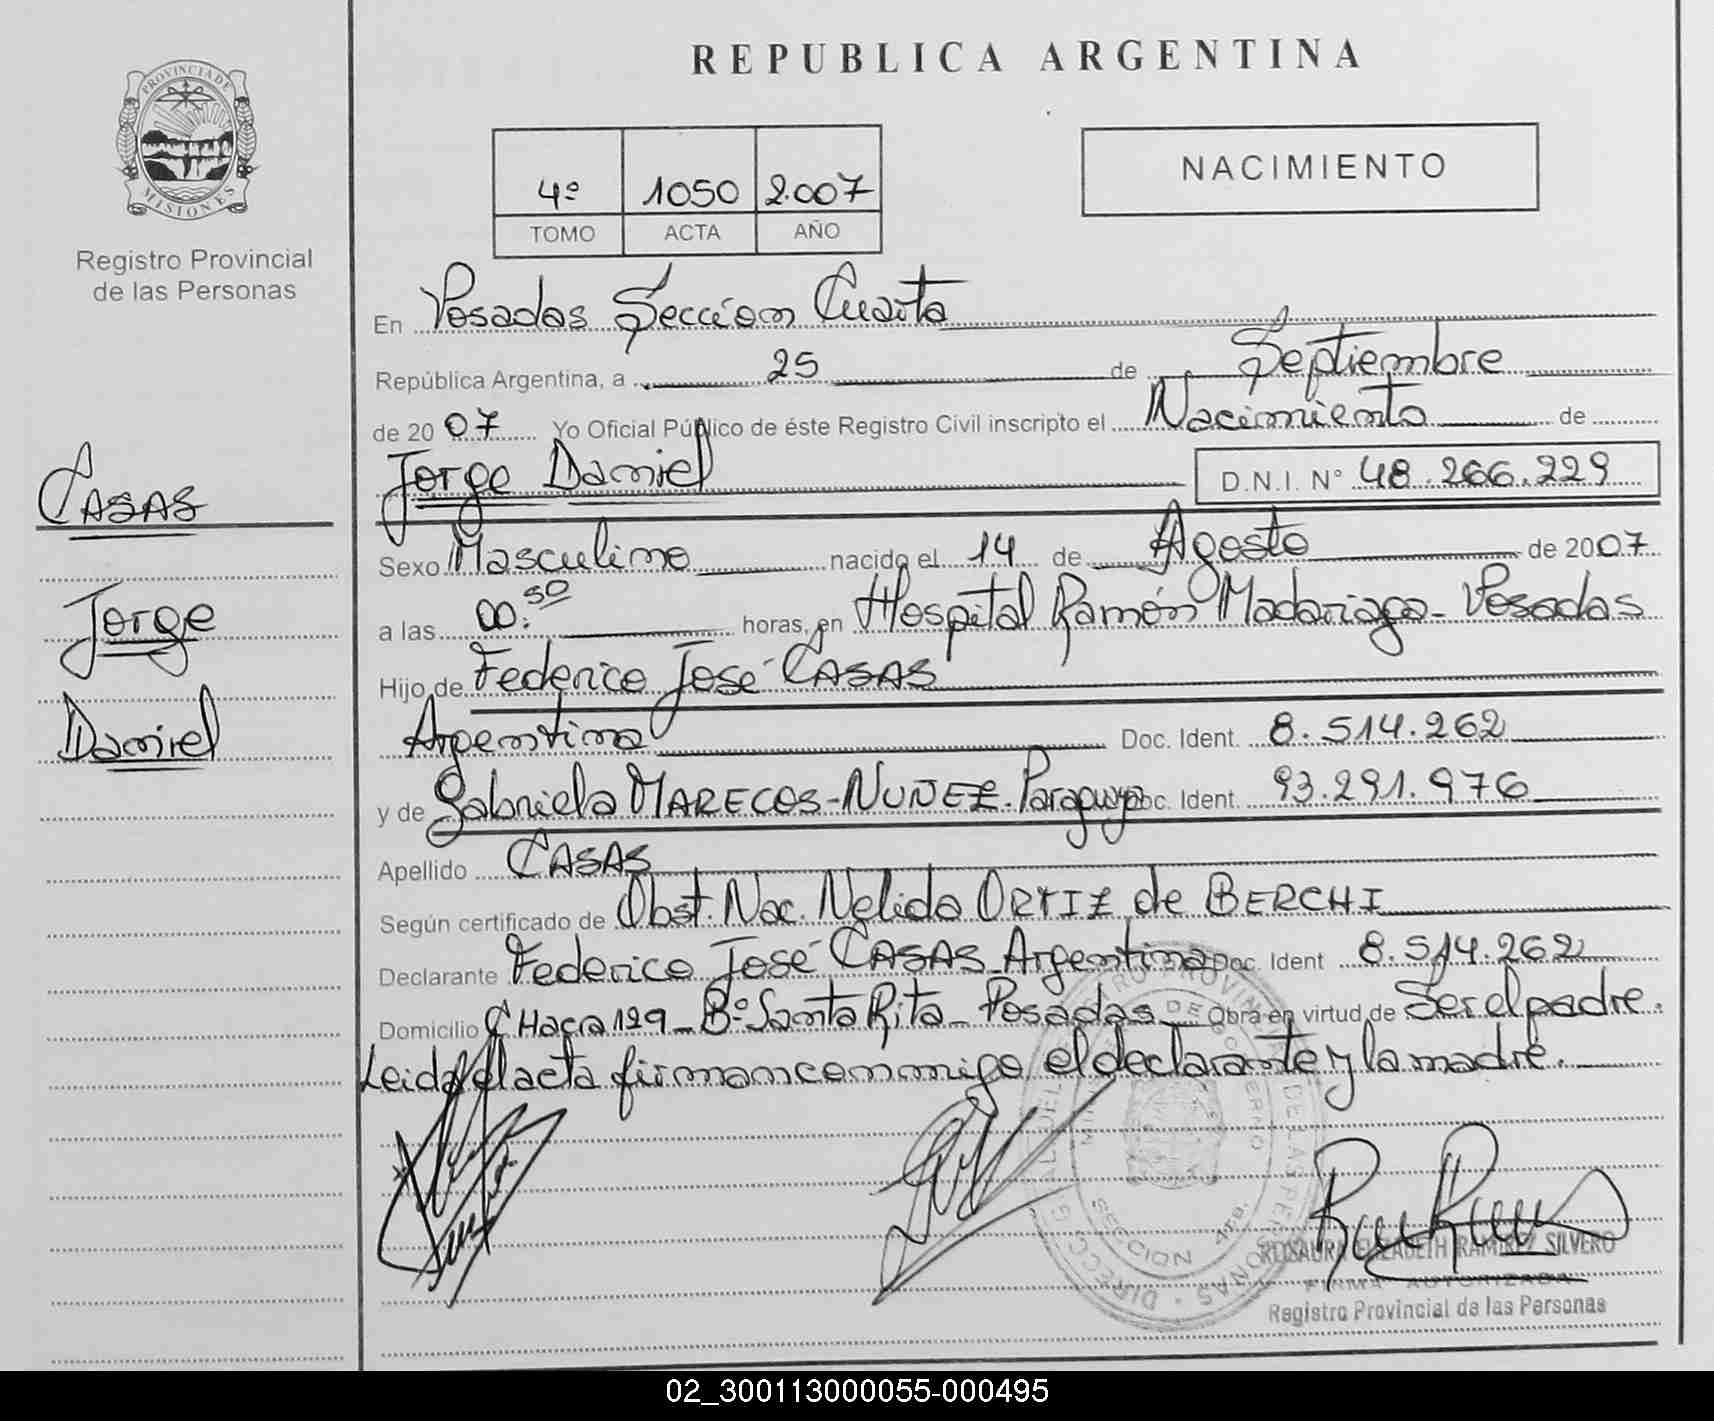 REPUBLICA ARGENTINA
PROVINCIA DE
MISIONES
Registro Provincial
de las Personas
4º 1050 2.007
TOMO ACTA AÑO
NACIMIENTO
En Posadas Sección Cuarta
República Argentina, a 25 de Septiembre
de 20 07 Yo Oficial Público de éste Registro Civil inscripto el Nacimiento de
Jorge Daniel D.N.I. Nº 48.266.229
CASAS
Jorge
Daniel
Sexo Masculino nacido el 14 de Agosto de 2007
a las 00:50 horas, en Hospital Ramón Madariaga - Posadas
Hijo de Federico José CASAS
Argentina Doc. Ident. 8.514.262
y de Gabriela MARECOS - NUÑEZ - Paraguaya Doc. Ident. 93.291.976
Apellido CASAS
Según certificado de Obst. Nac. Nelida ORTIZ de BERCHI
Declarante Federico José CASAS Argentina Doc. Ident 8.514.262
Domicilio CHacra 129 - Bº Santa Rita - Posadas - Obra en virtud de Ser el padre.
Leida el acta firman conmigo el declarante y la madre.
SECCION 4ta.
ROSAURA ELIZABETH RAMIREZ SILVERO
FIRMA AUTORIZADA
Registro Provincial de las Personas
02_300113000055-000495